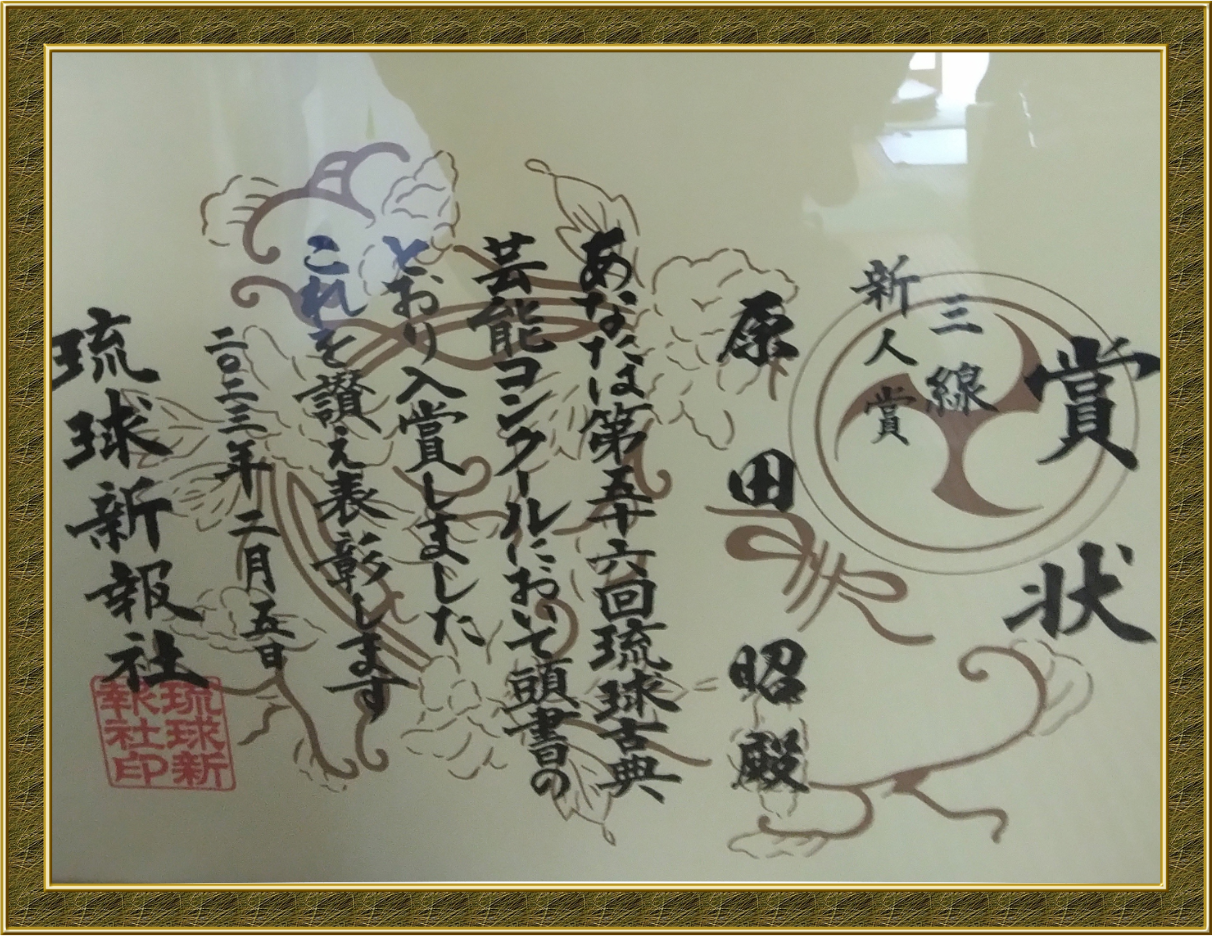 賞状
三線
新人賞
原田昭殿
あなたは第五十六回琉球古典
芸能コンクールにおいて頭書の
とおり入賞しました
これを讃え表彰します
二〇二三年二月五日
琉球新報社
琉球新
報社印